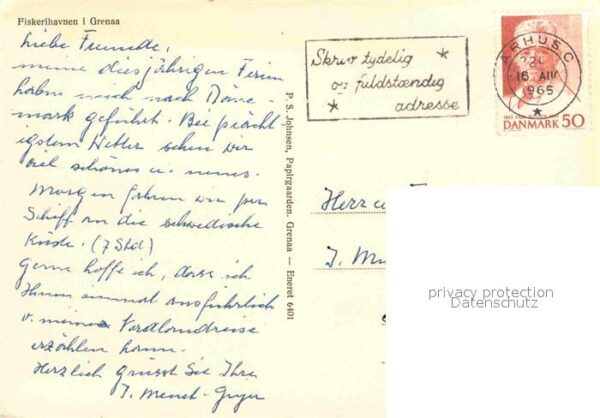 Fiskerihavnen i Grenaa
Liebe Freunde,
meine diesjährigen Ferien
haben mich nach Däne-
mark geführt. Bei prächt
igstem Wetter sehen wir
viel schönes u. neues.
Morgen fahren wir per
Schiff an die schwedische
Küste. (7 Std)
Gerne hoffe ich, dass ich
Ihnen einmal ausführlich
v. meiner Nordlandreise
erzählen kann.
Herzlich grüsst Sie Ihre
J.
P. S. Johnsen, Papirgaarden, Grenaa — Eneret 6401
Skriv tydelig
og fuldstændig
adresse
ARHUS C
16 AUG
1965
DANMARK 50
Herr u.
J.
privacy protection
Datenschutz